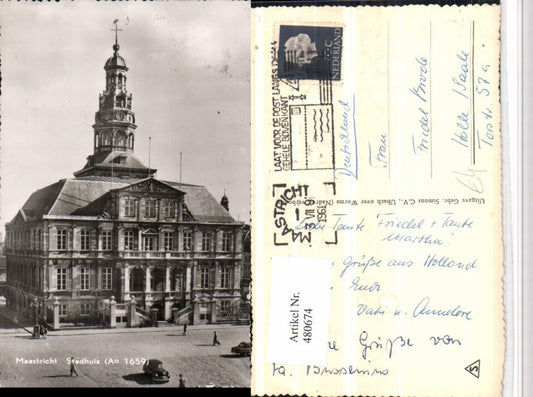 Maastricht Stadhuis (A° 1659)
NEDERLAND
LAAT VOOR DE POST LANGS DE
GEHELE BOVENKANT
MAASTRICHT
1961
Deutschland
Frau
Friedel Brode
Halle / Saale
Torstr. 57a
Uitgave Gebr. Simons C.V., Ubach over Worms
Liebe Tante Friedel + Tante
Martha!
Grüße aus Holland
Euer
Vati u. Annelore
Grüße von
Artikel Nr.
480674